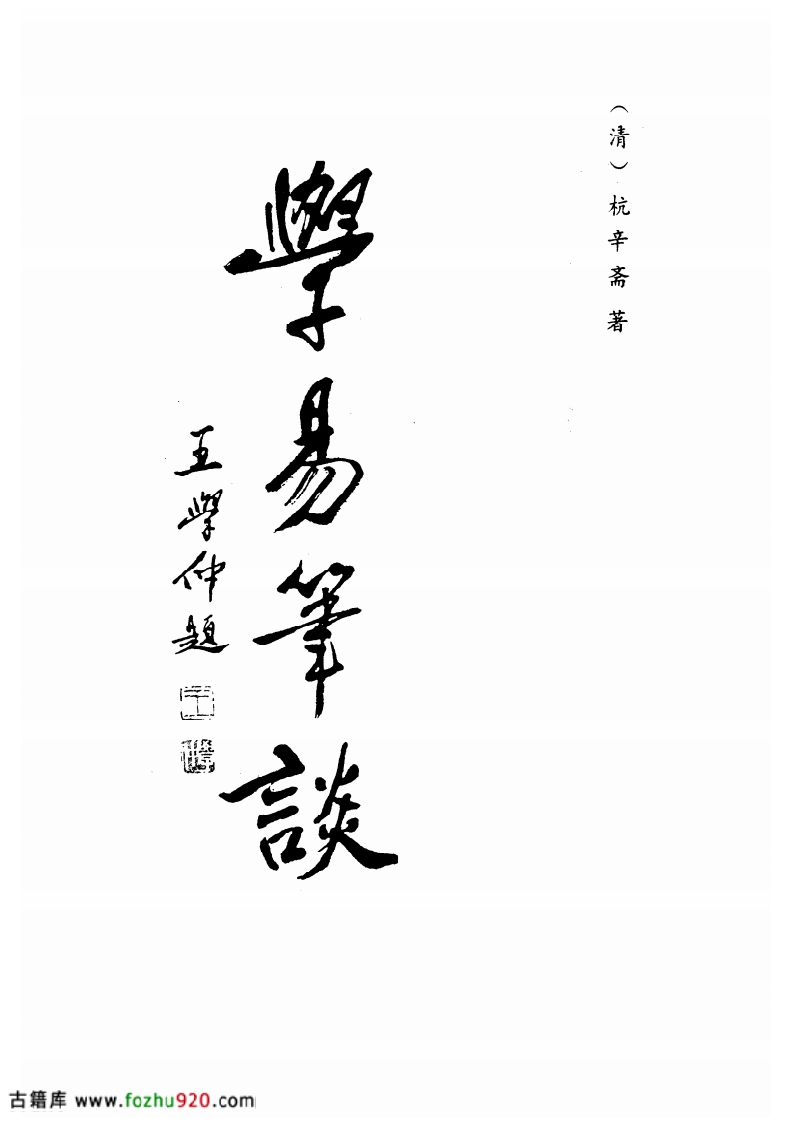 （清）杭辛斋 著
學易筆談
王學仲題
古籍库 www.fozhu920.com